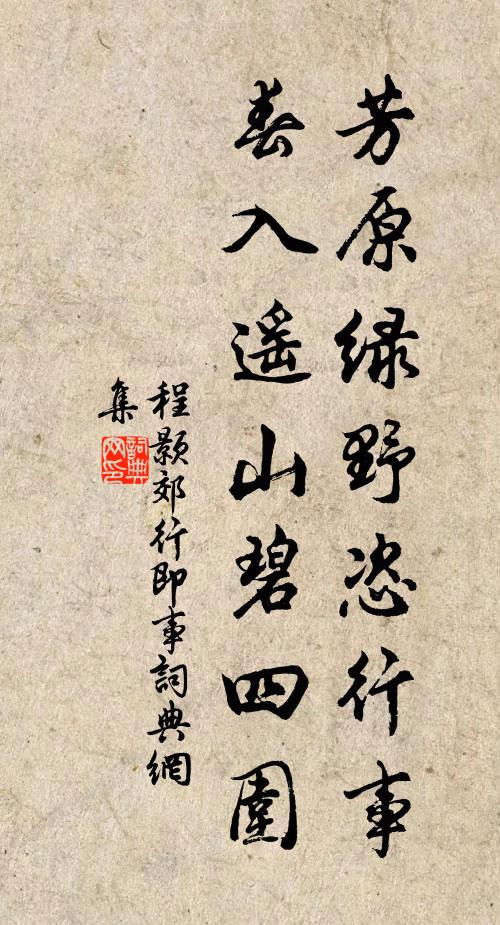 芳原绿野恣行事
春入遥山碧四圍
程颢郊行即事詞典網
集
詞典
网印